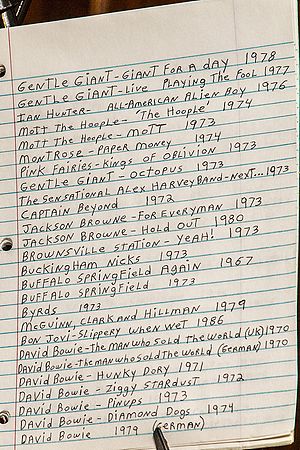 GENTLE GIANT-GIANT FOR A DAY 1978
GENTLE GIANT-LIVE PLAYING THE FOOL 1977
IAN HUNTER- ALL-AMERICAN ALIEN BOY 1976
MOTT THE HOOPLE- 'THE HOOPLE' 1974
MOTT THE HOOPLE- MOTT 1973
MONTROSE-PAPER MONEY 1974
PINK FAIRIES-KINGS OF OBLIVION 1973
GENTLE GIANT - OCTOPUS 1973
THE SENSATIONAL ALEX HARVEY BAND-NEXT...1973
CAPTAIN BEYOND 1972
JACKSON BROWNE-FOR EVERYMAN 1973
JACKSON BROWNE-HOLD OUT 1980
BROWNSVILLE STATION-YEAH! 1973
BUCKINGHAM NICKS 1973
BUFFALO SPRINGFIELD AGAIN 1967
BUFFALO SPRINGFIELD 1973
BYRDS 1973
McGUINN, CLARK AND HILLMAN 1979
BON JOVI-SLIPPERY WHEN WET 1986
DAVID BOWIE-THE MAN WHO SOLD THE WORLD (UK) 1970
DAVID BOWIE-THE MAN WHO SOLD THE WORLD (GERMAN) 1970
DAVID BOWIE - HUNKY DORY 1971
DAVID BOWIE - ZIGGY STARDUST 1972
DAVID BOWIE - PINUPS 1973
DAVID BOWIE - DIAMOND DOGS 1974
DAVID BOWIE 1979 (GERMAN)